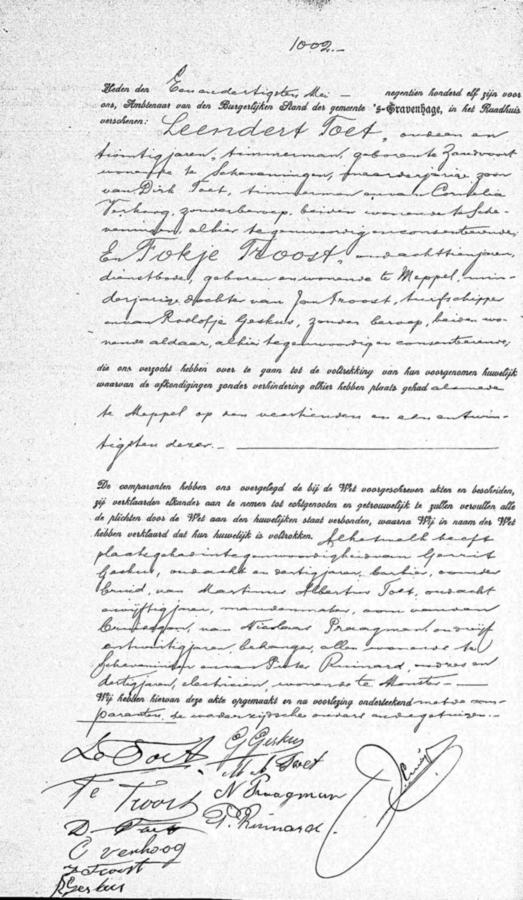 1002.-
Heden den Eenendertigsten Mei - negentien honderd elf zijn voor
ons, Ambtenaar van den Burgerlijken Stand der gemeente 's-Gravenhage, in het Raadhuis
verschenen: Leendert Toet, oud een en
twintig jaren, timmerman, geboren te Zandvoort
wonende te Scheveningen, meerderjarige zoon
van Dirk Toet, timmerman en van Cornelia
Verhoog, zonder beroep, beiden wonende te Sche-
veningen, alhier tegenwoordig en consenteerende
En Fokje Troost, oud achttien jaren,
dienstbode, geboren en wonende te Meppel, min-
derjarige dochter van Jan Troost, turfschipper
en van Roelofje Geskus, zonder beroep, beiden wo-
nende aldaar, alhier tegenwoordig en consenteerende,
die ons verzocht hebben over te gaan tot de voltrekking van hun voorgenomen huwelijk
waarvan de afkondigingen zonder verhindering alhier hebben plaats gehad alsmede
te Meppel op den veertienden en een en twin-
tigsten dezer.-
De comparanten hebben ons overgelegd de bij de Wet voorgeschreven akten en bescheiden,
zij verklaarden elkander aan te nemen tot echtgenooten en getrouwelijk te zullen vervullen alle
de plichten door de Wet aan den huwelijken staat verbonden, waarna Wij in naam der Wet
hebben verklaard dat hun huwelijk is voltrokken. Al hetwelk heeft
plaats gehad in tegenwoordigheid van Gerrit
Geskus, oud acht en dertig jaren, barbier, oom der
bruid, van Martinus Albertus Toet, oud acht
en vijftig jaar, mandenmaker, oom van den
bruidegom, van Nicolaas Praagman oud vijf
en twintig jaren, behanger, allen wonende te
Scheveningen en van Pieter Ruinard, oud zes en
dertig jaren, electricien, wonende te Monster.-
Wij hebben hiervan deze akte opgemaakt en na voorlezing onderteekend met de com-
paranten, de wederzijdsche ouders en de getuigen.-
L. Toet G Geskus
M A Toet
Fe Troost N Praagman
D Toet P. Ruinard.
C Verhoog
J Troost
R Geskus